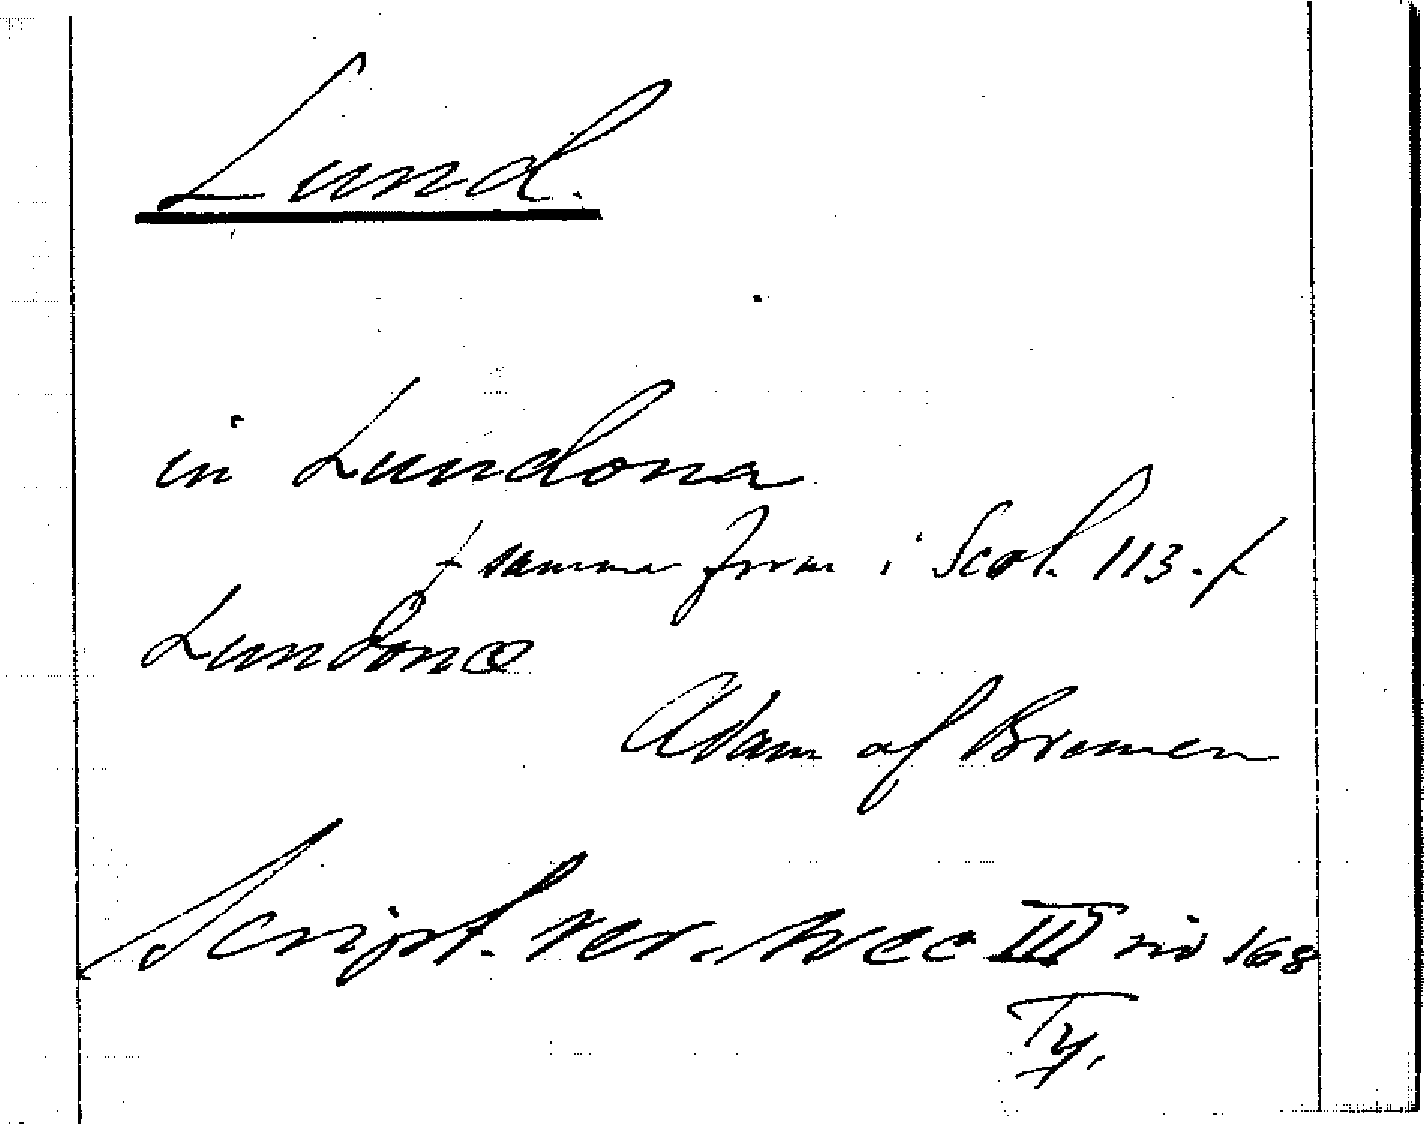 Lund.
in Lundona
/ samma form i Scol. 113. /
Lundonæ
Adam af Bremen
Script. rer. svec III sid 168
Ty.